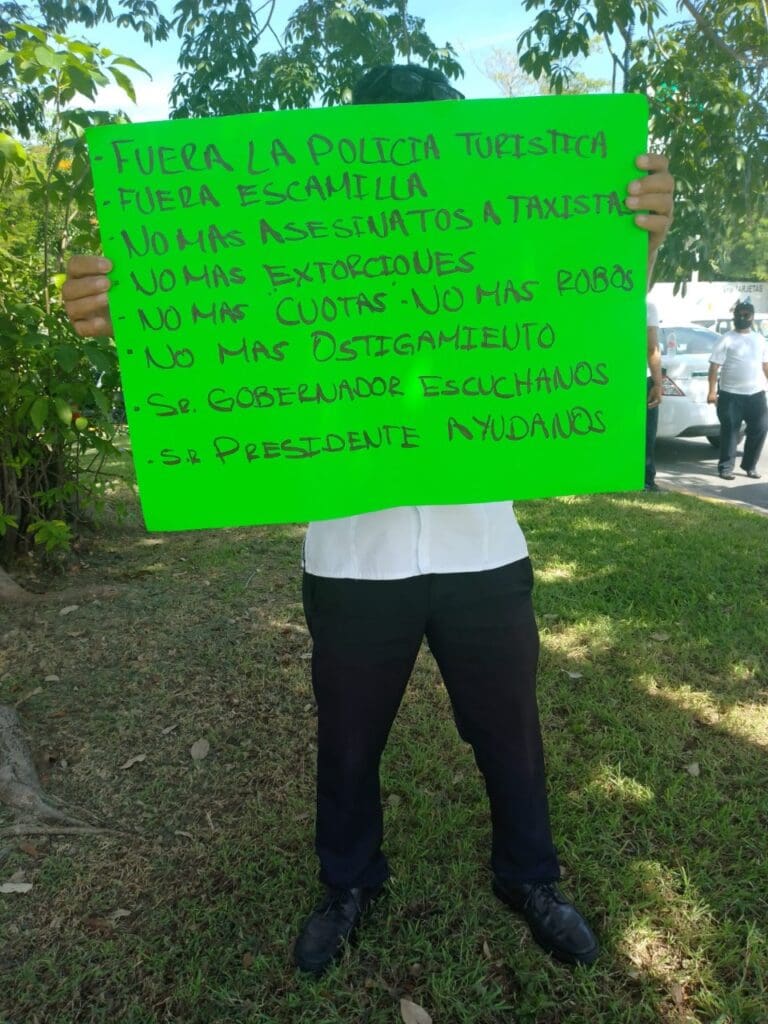 - FUERA LA POLICIA TURISTICA
- FUERA ESCAMILLA
- NO MAS ASESINATOS A TAXISTAS
- NO MAS EXTORCIONES
- NO MAS "CUOTAS" - NO MAS ROBOS
- NO MAS OSTIGAMIENTO
- SR. GOBERNADOR ESCUCHANOS
- SR PRESIDENTE AYUDANOS
TARJETAS